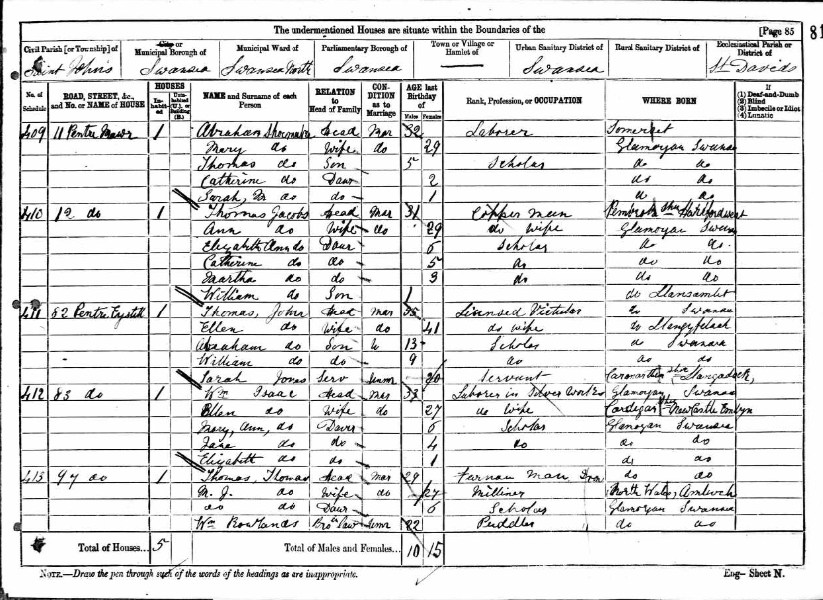 The undermentioned Houses are situate within the Boundaries of the
[Page 85
81
Civil Parish [or Township] of
City or Municipal Borough of
Municipal Ward of
Parliamentary Borough of
Town or Village or Hamlet of
Urban Sanitary District of
Rural Sanitary District of
Ecclesiastical Parish or District of
Saint Johns Swansea Swansea North Swansea Swansea St Davids
No. of Schedule
ROAD, STREET, &c., and No. or NAME of HOUSE
HOUSES
Inhabited
Uninhabited (U.), or Building (B.)
NAME and Surname of each Person
RELATION to Head of Family
CONDITION as to Marriage
AGE last Birthday of
Males
Females
Rank, Profession, or OCCUPATION
WHERE BORN
If
(1) Deaf-and-Dumb
(2) Blind
(3) Imbecile or Idiot
(4) Lunatic
409 11 Pentre Mawr 1 Abraham Shoemaker Head Mar 32 Laborer Somerset
Mary do Wife do 29 Glamorgan Swansea
Thomas do Son 5 Scholar do do
Catherine do Daur 2 do do
Sarah, do do 1 do do
410 12 do 1 Thomas Jacobs Head Mar 31 Copper man Pembrokeshire Haverfordwest
Ann do Wife do 29 do Wife Glamorgan Swansea
Elizabeth Ann do Daur 6 Scholar do do
Catherine do do 5 do do do
Martha do do 3 do do do
William do Son 1 do Llansamlet
411 52 Pentre 1 Thomas, John Head Mar 35 Licensed Victular do Swansea
Ellen do Wife do 41 do wife do Llangyfelach
Abraham do Son 13 Scholar do Swansea
William do do 9 do do do
Sarah Jones Serv 20 Servant Carmarthenshire Llangadock
412 83 do 1 Wm Isaac Head Mar 33 Laborer in Silver Works Glamorgan Swansea
Ellen do Wife do 27 do Wife Cardigan Newcastle Emlyn
Mary, Ann, do Daur 6 Scholar Glamorgan Swansea
Jane do do 4 do do do
Elizabeth do do 1 do do
413 97 do 1 Thomas, Thomas Head Mar 29 Furnace Man do do
M. J. do Wife do 27 Milliner North Wales, Amlwch
do do Daur 6 Scholar Glamorgan Swansea
Wm Rowlands Bro in Law 22 Puddler do do
Total of Houses... 5
Total of Males and Females... 10 15
NOTE.—Draw the pen through such of the words of the headings as are inappropriate.
Eng— Sheet N.